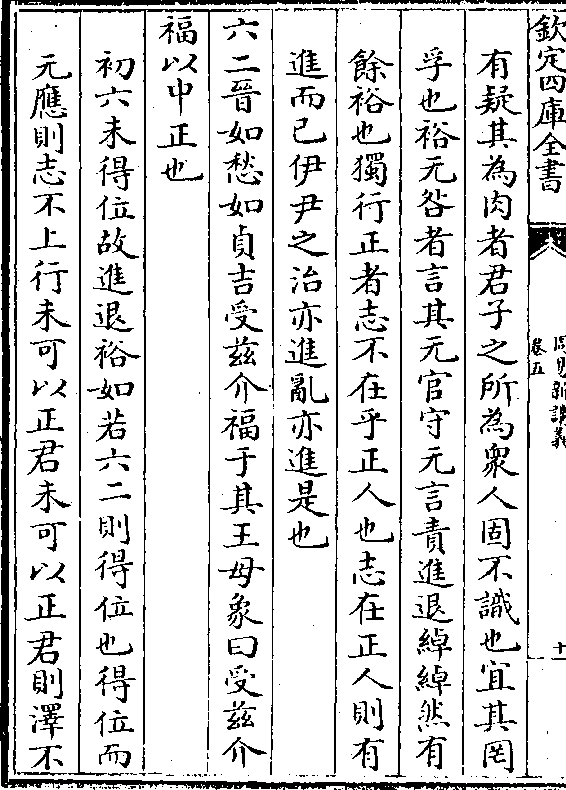 欽定四庫全書
周易新講義
卷五
十一
有疑其為肉者君子之所為衆人固不識也宜其罔
孚也裕无咎者言其无官守无言責進退綽綽然有
餘裕也獨行正者志不在乎正人也志在正人則有
進而已伊尹之治亦進亂亦進是也
六二晉如愁如貞吉受兹介福于其王母象曰受兹介
福以中正也
初六未得位故進退裕如若六二則得位也得位而
无應則志不上行未可以正君未可以正君則澤不